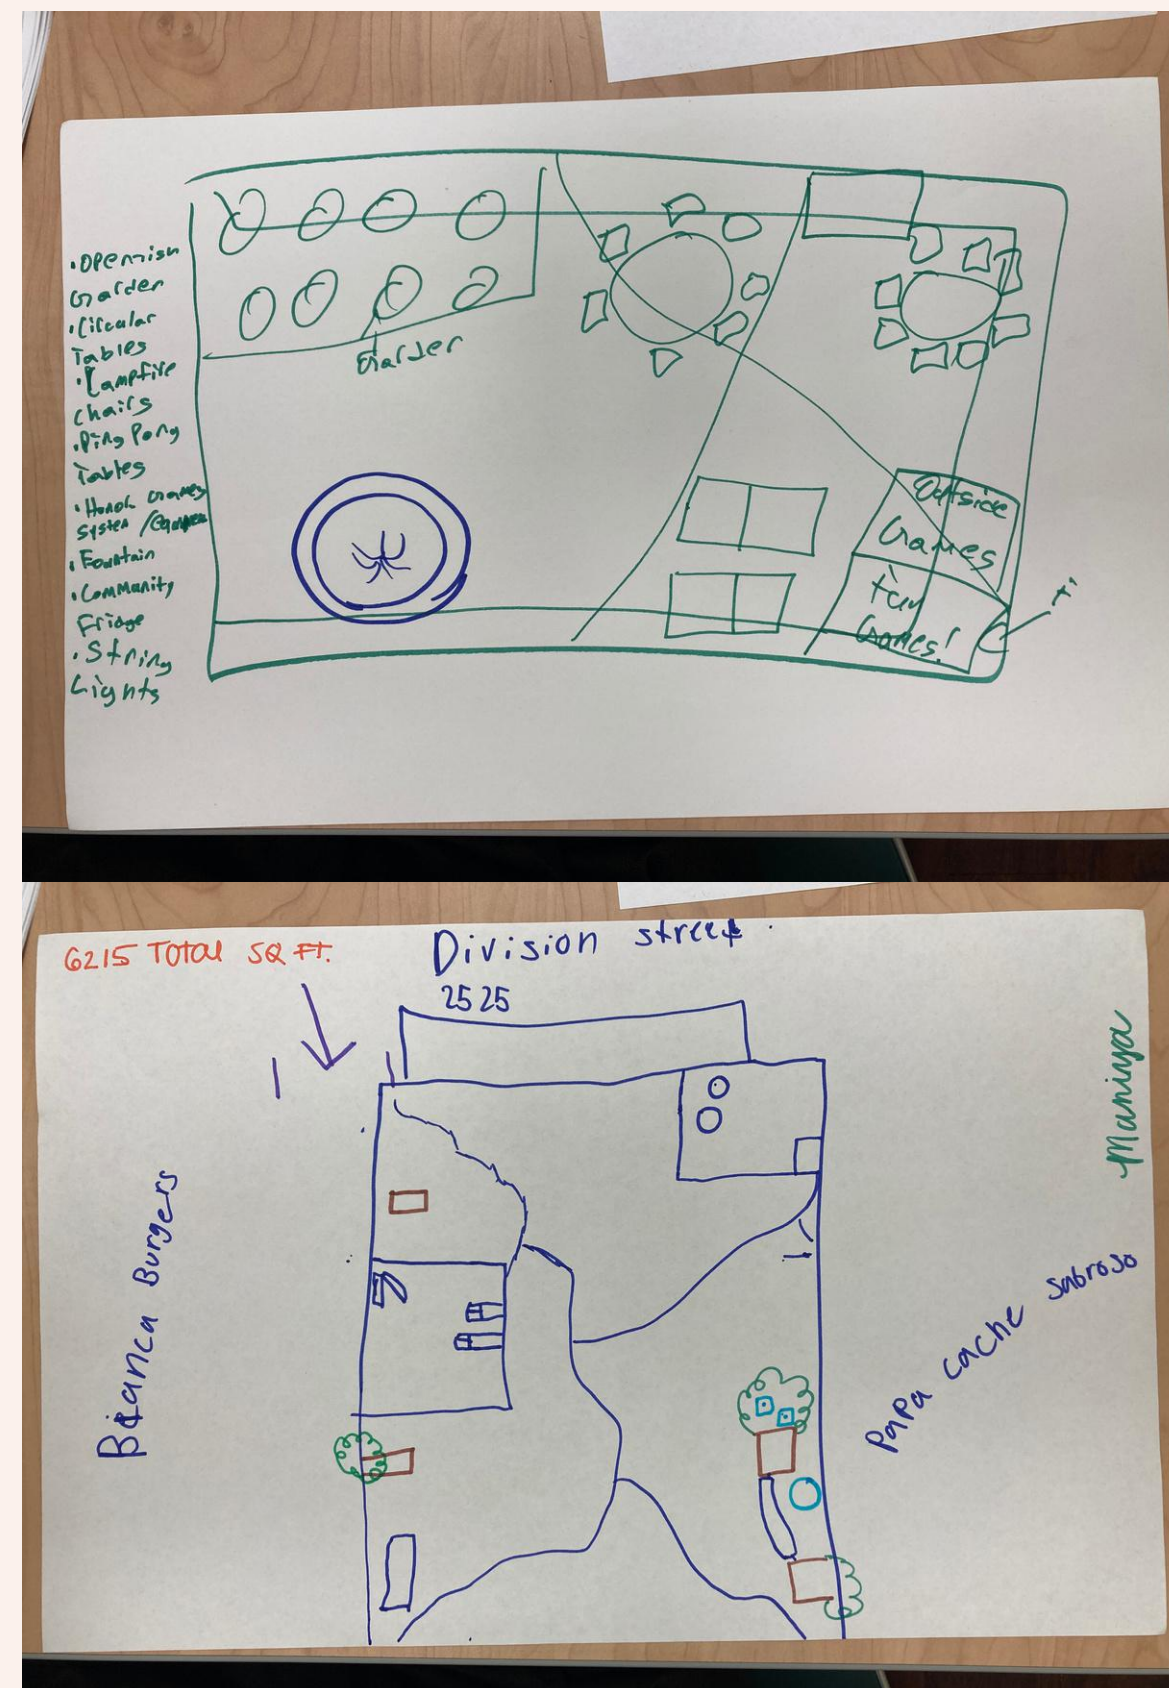 Garden
Circular
Tables
Campfire
chairs
Ping Pong
Tables
System
Fountain
Community
Fridge
String
Lights
Garden
Outside
Games
Fun
Games!
6215 Total SQ FT.
Division street
25 25
Maninya
Bianca Burgers
Papa cache sabroso